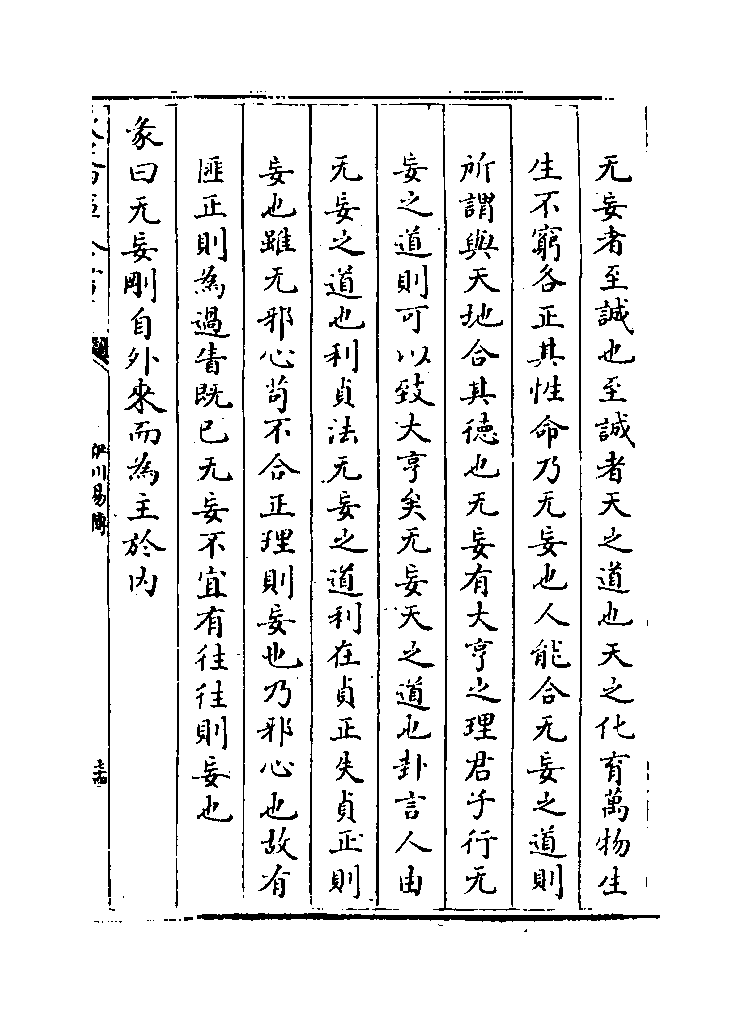 无妄者至誠也至誠者天之道也天之化育萬物生
生不窮各正其性命乃无妄也人能合无妄之道則
所謂與天地合其德也无妄有大亨之理君子行无
妄之道則可以致大亨矣无妄天之道也卦言人由
无妄之道也利貞法无妄之道利在貞正失貞正則
妄也雖无邪心苟不合正理則妄也乃邪心也故有
匪正則為過眚既已无妄不宜有往往則妄也
彖曰无妄剛自外來而為主於内
伊川易傳